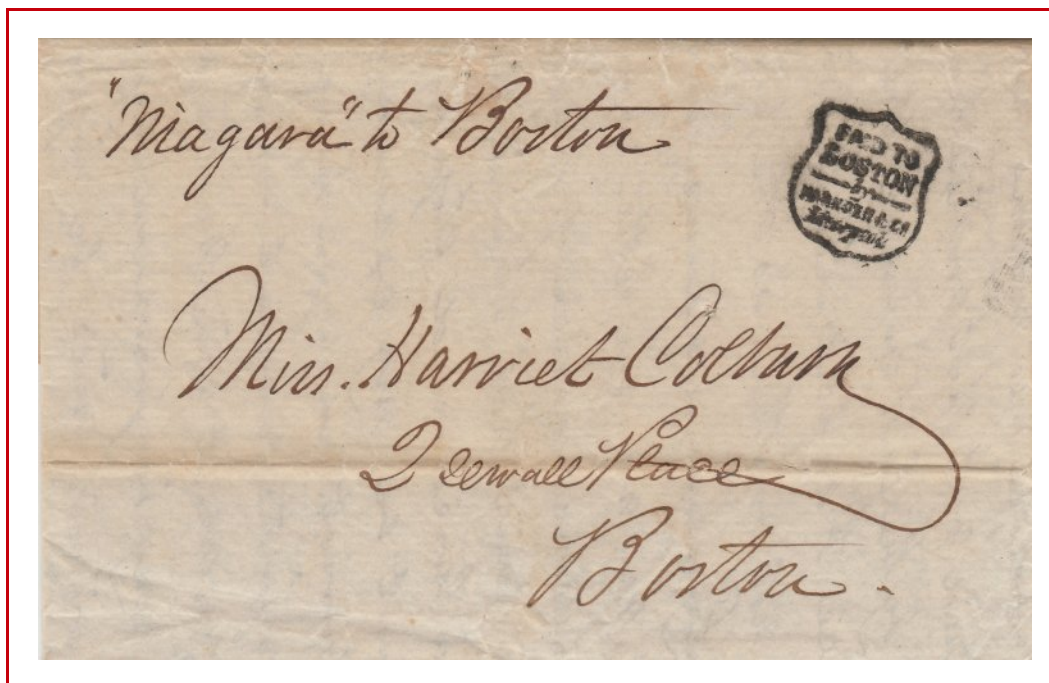 "Niagara" to Boston
PAID TO
BOSTON
by
HARNDEN & Co
Liverpool
Miss. Harriet Colburn
2 Sewall Place
Boston.